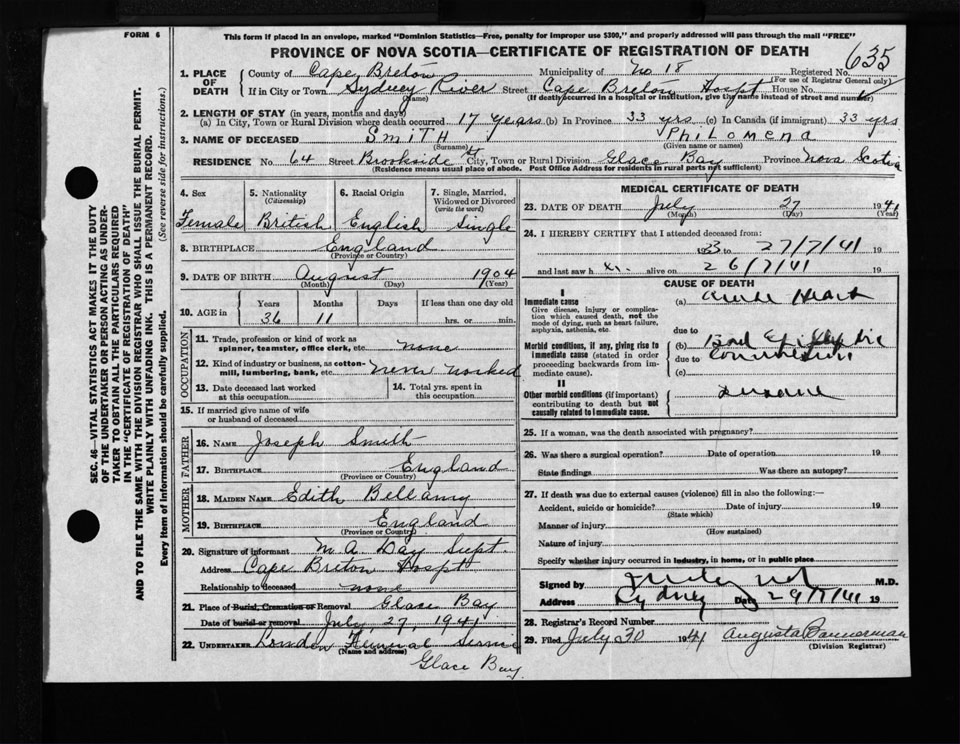 FORM 6
This form if placed in an envelope, marked "Dominion Statistics—Free, penalty for improper use $300," and properly addressed will pass through the mail "FREE"
PROVINCE OF NOVA SCOTIA—CERTIFICATE OF REGISTRATION OF DEATH
635
1. PLACE OF DEATH County of Cape Breton Municipality of No 18 Registered No.
(For use of Registrar General only)
If in City or Town Sydney River Street Cape Breton Hospt House No.
(Name) (If death occurred in a hospital or institution, give the name instead of street and number)
2. LENGTH OF STAY (in years, months and days)
(a) In City, Town or Rural Division where death occurred 17 years (b) In Province 33 yrs (c) In Canada (if immigrant) 33 yrs
3. NAME OF DECEASED Smith Philomena
(Surname) (Given name or names)
RESIDENCE No. 64 Street Brookside St City, Town or Rural Division Glace Bay Province Nova Scotia
(Residence means usual place of abode. Post Office Address for residents in rural parts not sufficient)
4. Sex 5. Nationality 6. Racial Origin 7. Single, Married, Widowed or Divorced
(Citizenship) (write the word)
Female British English Single
8. BIRTHPLACE England
(Province or Country)
9. DATE OF BIRTH August 1904
(Month) (Day) (Year)
10. AGE in Years Months Days If less than one day old
36 11 hrs. or min.
OCCUPATION
11. Trade, profession or kind of work as spinner, teamster, office clerk, etc. none
12. Kind of industry or business, as cotton-mill, lumbering, bank, etc. never worked
13. Date deceased last worked at this occupation
14. Total yrs. spent in this occupation
15. If married give name of wife or husband of deceased
FATHER
16. NAME Joseph Smith
17. BIRTHPLACE England
(Province or Country)
MOTHER
18. MAIDEN NAME Edith Bellamy
19. BIRTHPLACE England
(Province or Country)
20. Signature of informant M. A. Day Supt.
Address Cape Breton Hospt
Relationship to deceased none
21. Place of Burial, Cremation or Removal Glace Bay
Date of burial or removal July 27, 1941
22. UNDERTAKER Funeral Service
(Name and address)
Glace Bay
MEDICAL CERTIFICATE OF DEATH
23. DATE OF DEATH July 27 1941
(Month) (Day) (Year)
24. I HEREBY CERTIFY that I attended deceased from:
1923 to 27/7/41 19
and last saw h alive on 26/7/41 19
CAUSE OF DEATH
I
Immediate cause
Give disease, injury or complication which caused death, not the mode of dying, such as heart failure, asphyxia, asthenia, etc.
(a) Heart
due to
Morbid conditions, if any, giving rise to immediate cause (stated in order proceeding backwards from immediate cause).
(b)
due to
(c)
II
Other morbid conditions (if important) contributing to death but not causally related to immediate cause.
25. If a woman, was the death associated with pregnancy?
26. Was there a surgical operation? Date of operation 19
State findings Was there an autopsy?
27. If death was due to external causes (violence) fill in also the following:—
Accident, suicide or homicide? Date of injury 19
(State which)
Manner of injury
(How sustained)
Nature of injury
Specify whether injury occurred in industry, in home, or in public place
Signed by M.D.
Address Sydney Date 29/7/41 19
28. Registrar's Record Number
29. Filed July 30 1941 Augusta Bannerman
(Division Registrar)
SEC. 46—VITAL STATISTICS ACT MAKES IT THE DUTY
OF THE UNDERTAKER OR PERSON ACTING AS UNDER-
TAKER TO OBTAIN ALL THE PARTICULARS REQUIRED
IN THE "CERTIFICATE OF REGISTRATION OF DEATH"
AND TO FILE THE SAME WITH THE DIVISION REGISTRAR WHO SHALL ISSUE THE BURIAL PERMIT.
WRITE PLAINLY WITH UNFADING INK. THIS IS A PERMANENT RECORD.
Every item of information should be carefully supplied. (See reverse side for instructions.)